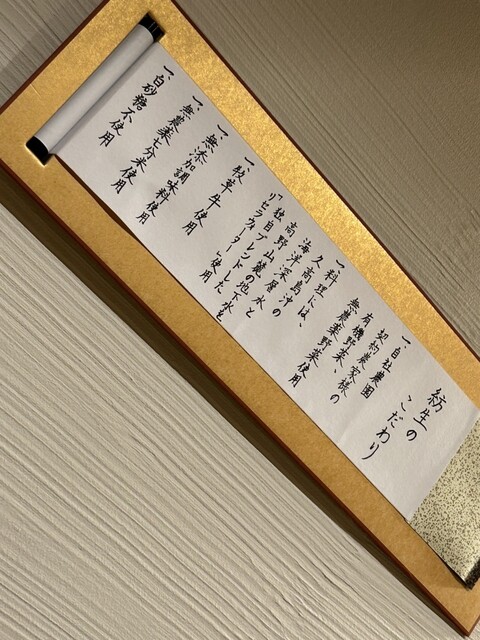 紡生の
こだわり
一、自社農園
契約農家様の
有機野菜、
無農薬野菜使用
一、料理には、
久高島沖の
海洋深層水と
高野山麓の地下水を
独自ブレンドした
リセラウォーターを使用
一、穀草牛使用
一、無添加調味料使用
一、無農薬七分米使用
一、白砂糖不使用